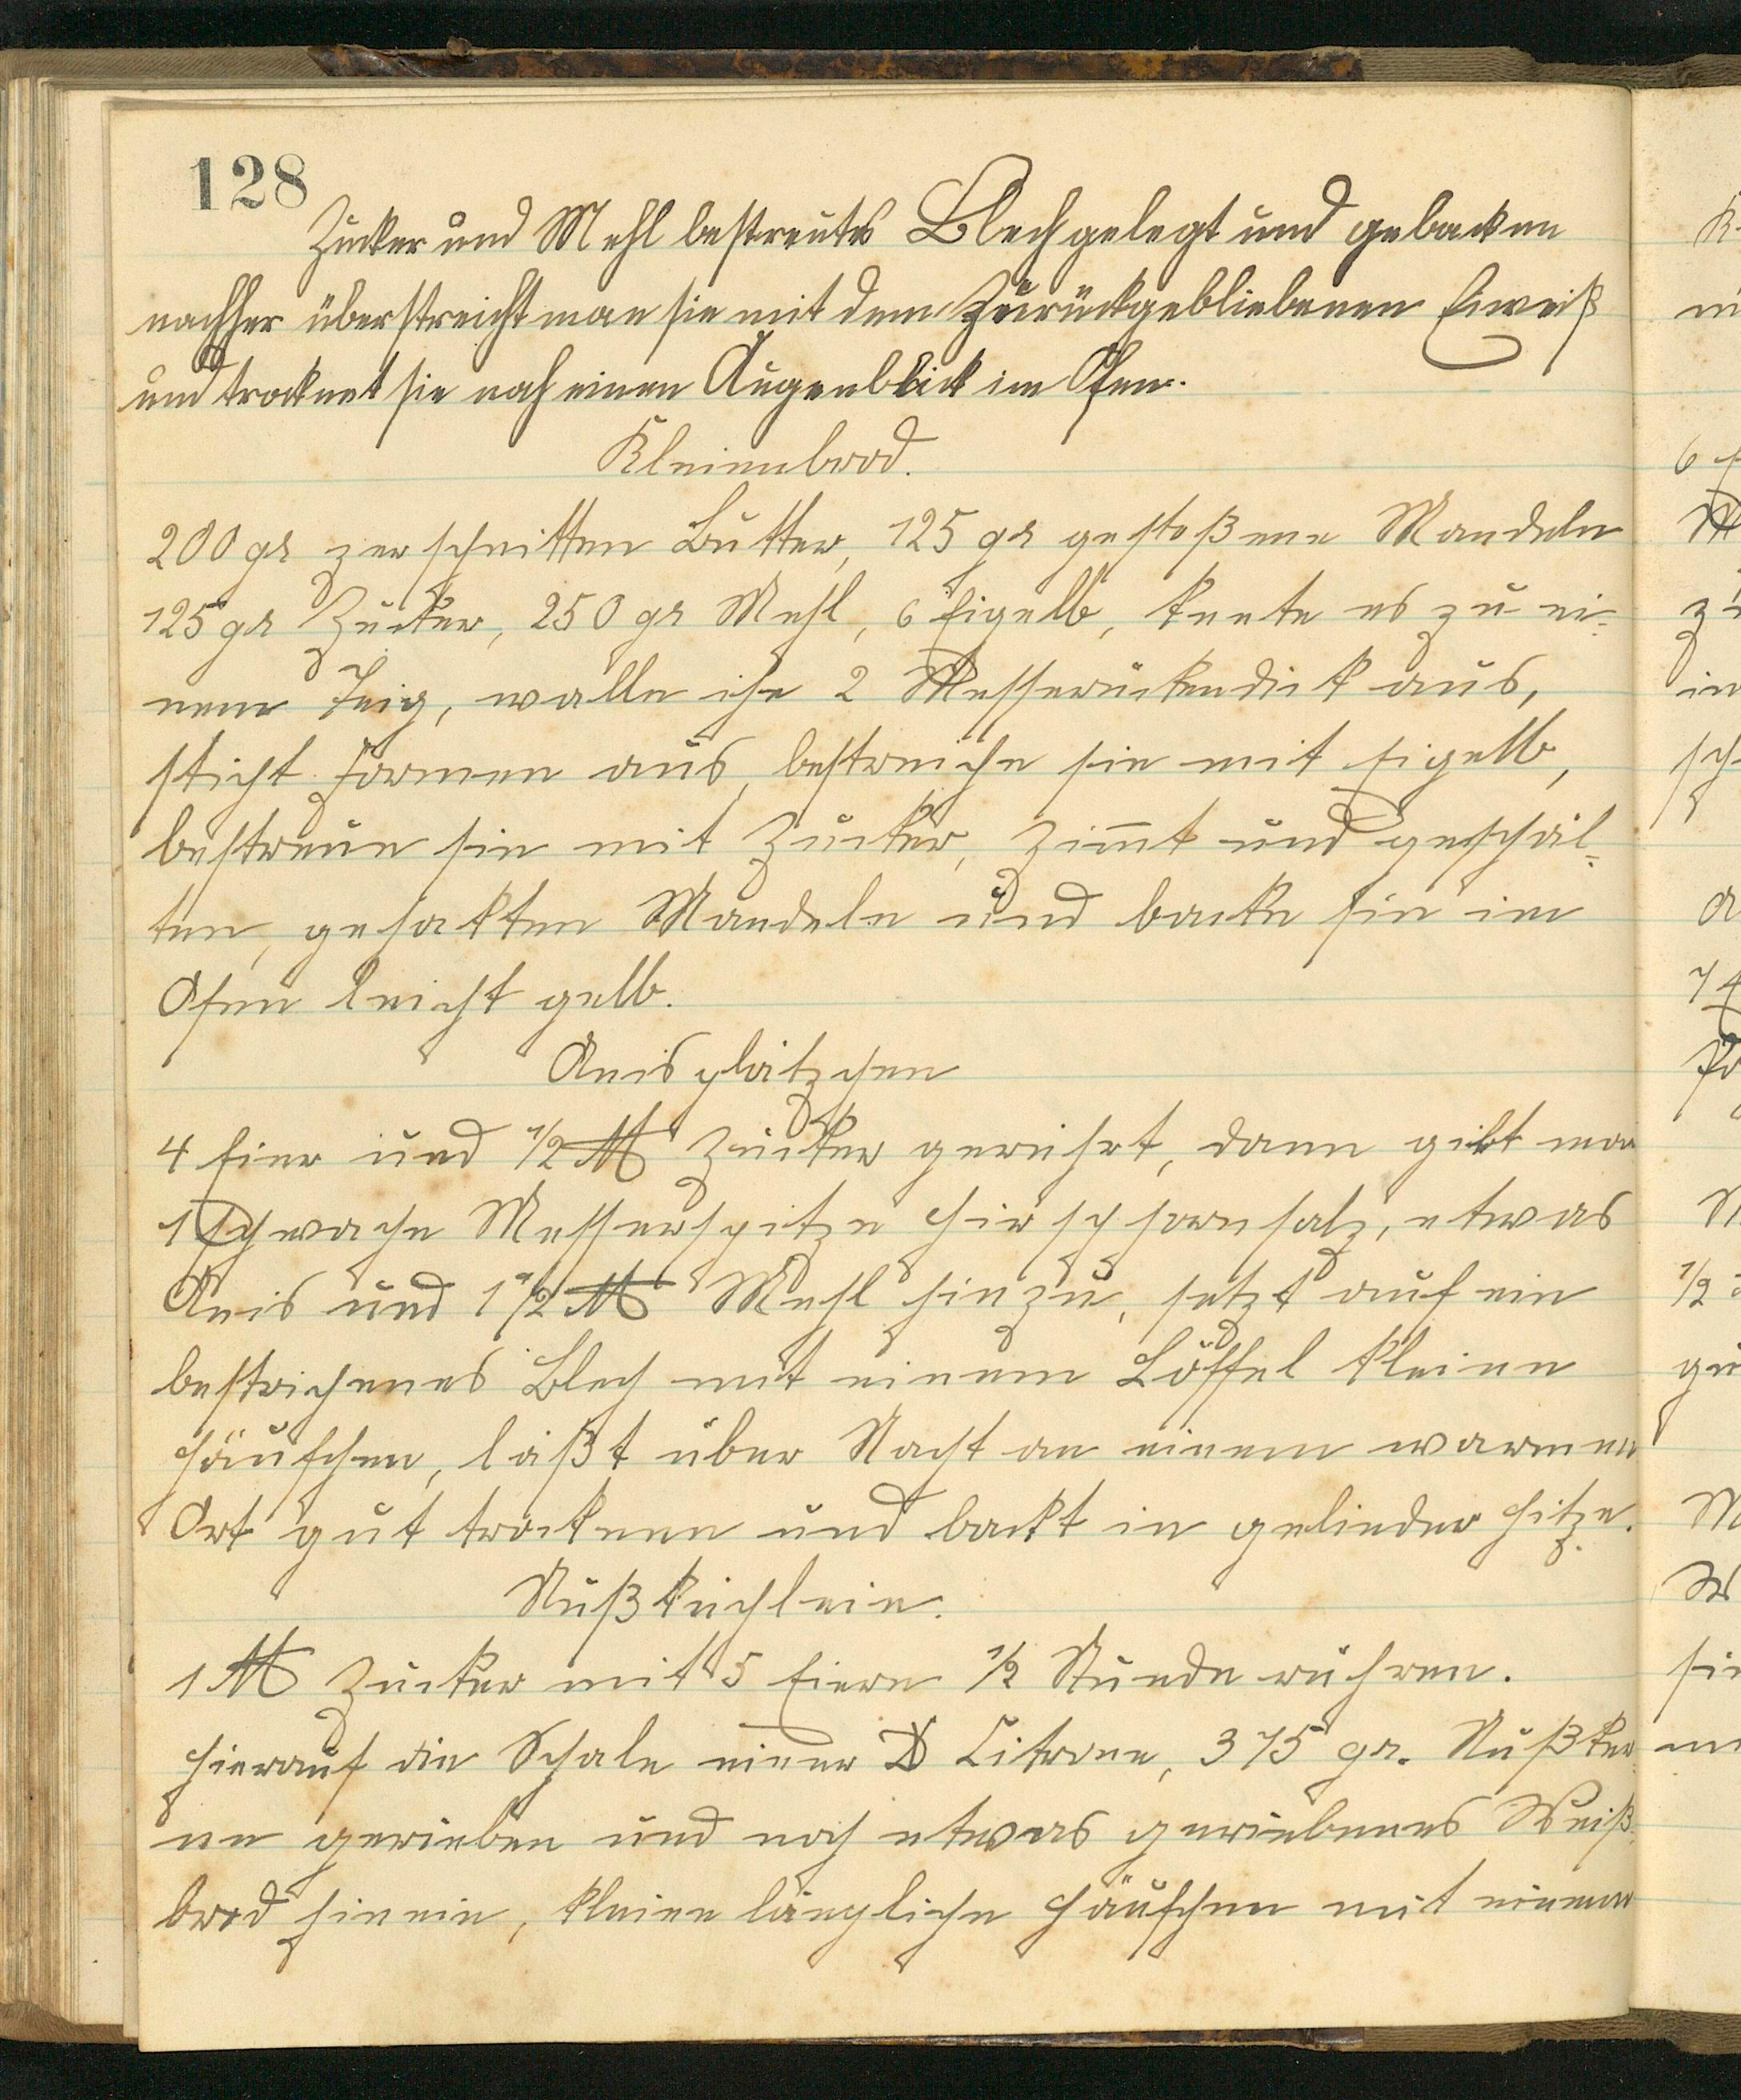 128
Zucker und Mehl bestreutes Blech gelegt und gebacken
nachher überstreicht man sie mit dem Zurückgebliebenen Eiweiß
und trocknet sie noch einen Augenblick im Ofen.
Kleienbrod.
200 gr zerschnitten Butter, 125 gr gestoßene Mandeln
125 gr Zucker, 250 gr Mehl, 6 Eigelb, knete es zu ei-
nem Teig, walle ihn 2 Messerückendick aus,
sticht Formen aus, bestreiche sie mit Eigelb,
bestreue sie mit Zucker, Zimt und geschäl-
ten, gehakten Mandeln und backe sie im
Ofen leicht gelb.
Anisplätzchen
4 Eier und 1/2 ℔ Zucker gerührt, dann gibt man
1 schwache Messerspitze Hirschhornsalz, etwas
Anis und 1 1/2 ℔ Mehl hinzu, setzt auf ein
bestrichenes Blech mit einem Löffel kleine
Häufchen, läßt über Nacht an einem warmen
Ort gut trocknen und backt in gelinder Hitze.
Nußküchlein.
1 ℔ Zucker mit 5 Eiern 1/2 Stunde rühren.
Hierauf die Schale einer Citrone, 375 gr. Nußker-
ne gerieben und noch etwas geriebenes Weiß-
brod hinein, kleine längliche Häufchen mit einem